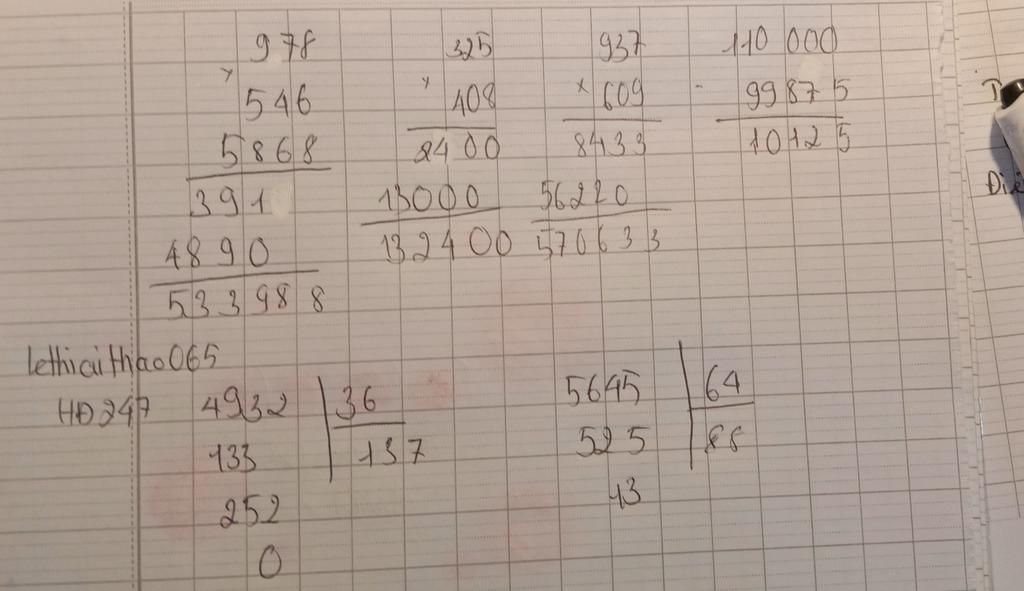 978
×
546
5868
391
4890
533988
325
×
408
2400
13000
132400
937
×
609
8433
56220
570633
110 000
-
99875
10125
lethicuithao065
HĐ247
4932 36
133 137
252
0
5645 64
525 88
13
Điề